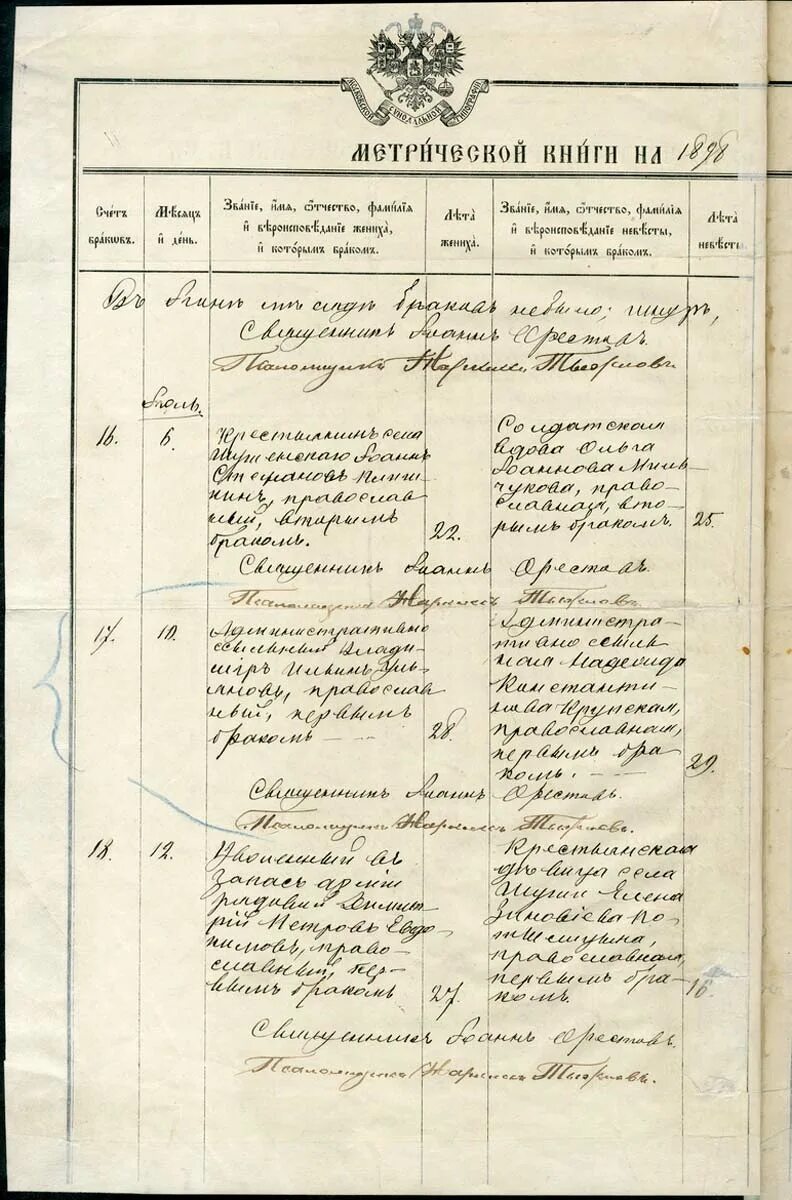 МОСКОВСКОЙ СѴНОДАЛЬНОЙ ТИПОГРАФІИ
МЕТРИ́ЧЕСКОЙ КНИ́ГИ НА 1898
Сче́тъ бра́ковъ.
Мѣ́сяцъ и҆ де́нь.
Зва́нїе, и҆́мѧ, ѻ҆́тчество, фами́лїѧ и҆ вѣроисповѣ́данїе жениха̀, и҆ кото́рымъ бра́комъ.
Лѣ́та жениха̀.
Зва́нїе, и҆́мѧ, ѻ҆́тчество, фами́лїѧ и҆ вѣроисповѣ́данїе невѣ́сты, и҆ кото́рымъ бра́комъ.
Лѣ́та невѣ́сты
Въ Іюнѣ мѣсяцѣ браковъ небыло;
Священникъ Іоаннъ Орестовъ.
Псаломщикъ
Іюль.
16.
6.
Крестьянинъ села
Шушенскаго Іоаннъ
Стефановъ
нинъ, православ
ный, вторымъ
бракомъ.
22.
Солдатская
вдова Ольга
Іоаннова Миль-
чукова, право-
славная, вто-
рымъ бракомъ.
25.
Священникъ Іоаннъ Орестовъ.
Псаломщикъ
17.
10.
Административно
ссыльный Влади-
міръ Ильинъ Уль-
яновъ, православ
ный, первымъ
бракомъ — - -
28.
Администра-
тивно ссыль-
ная Надежда
Константи-
нова Крупская,
православная,
первымъ бра-
комъ. - —
29.
Священникъ Іоаннъ Орестовъ.
Псаломщикъ
18.
12.
Уволенный въ
запасъ арміи
рядовой Димит-
рій Петровъ Евдо-
кимовъ, право-
славный, пер-
вымъ бракомъ
27.
Крестьянская
дѣвица села
Шуши Елена
Зиновіева По-
православная,
первымъ бра-
комъ.
16.
Священникъ Іоаннъ Орестовъ.
Псаломщикъ